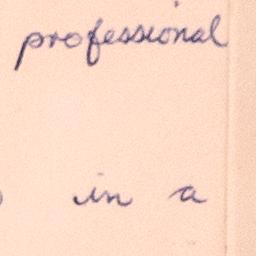 professional
in a